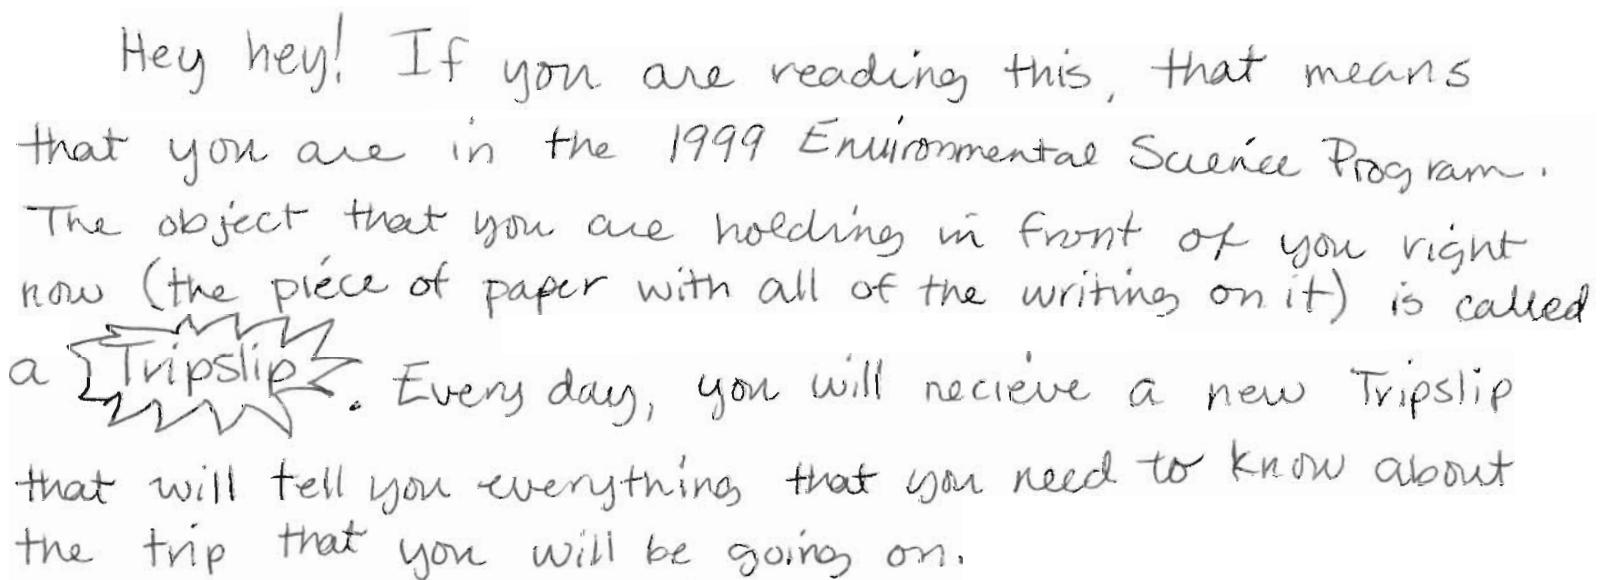 Hey hey! If you are reading this, that means
that you are in the 1999 Environmental Science Program.
The object that you are holding in front of you right
now (the piece of paper with all of the writing on it) is called
a Tripslip. Every day, you will recieve a new Tripslip
that will tell you everything that you need to know about
the trip that you will be going on.